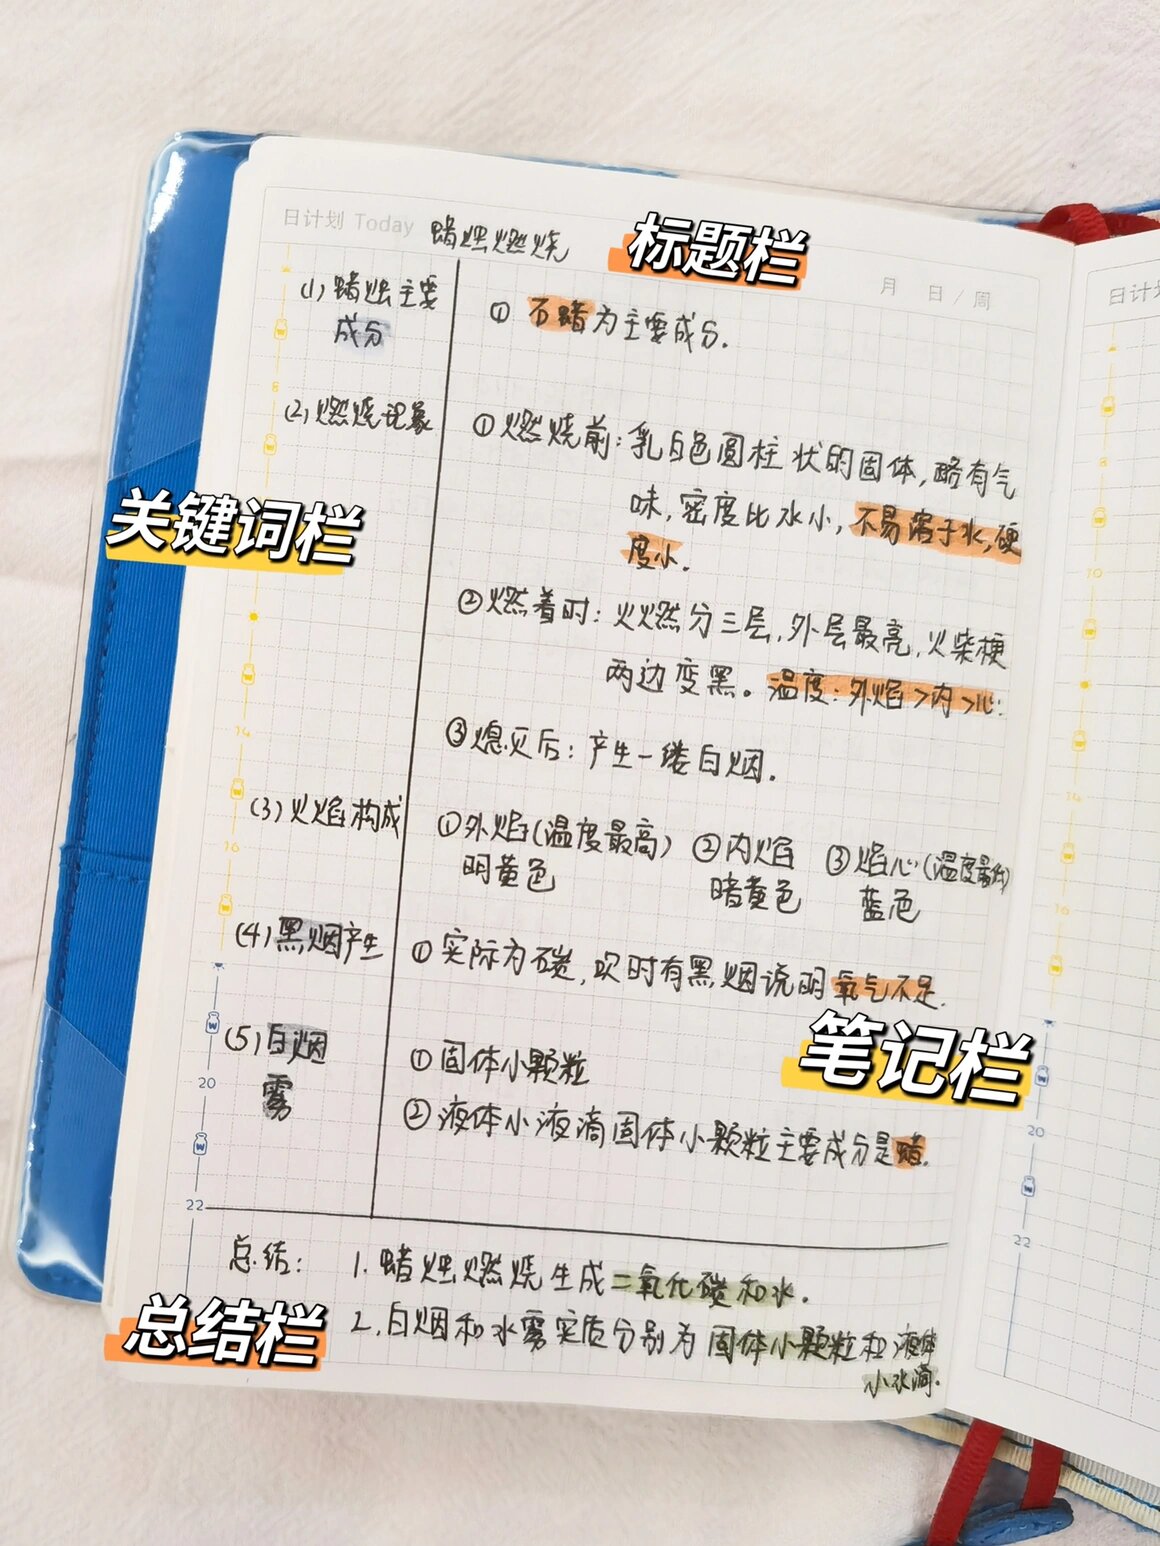 日计划 Today 蜡烛燃烧
标题栏
月 日/周
(1) 蜡烛主要
成分
① 石蜡为主要成分.
(2) 燃烧现象
① 燃烧前:乳白色圆柱状的固体,略有气
味,密度比水小,不易溶于水,硬
度小.
关键词栏
② 燃着时:火燃分三层,外层最亮,火柴梗
两边变黑。温度:外焰>内>心.
③ 熄灭后:产生一缕白烟.
(3) 火焰构成
① 外焰(温度最高) ② 内焰 ③ 焰心(温度最低)
明黄色 暗黄色 蓝色
(4) 黑烟产生
① 实际为碳,吹时有黑烟说明氧气不足.
笔记栏
(5) 白烟
雾
① 固体小颗粒
② 液体小液滴固体小颗粒主要成分是蜡.
总结: 1.蜡烛燃烧生成二氧化碳和水.
2.白烟和水雾实质分别为固体小颗粒和液体
小水滴.
总结栏
8
14
16
20
22
日计划
8
10
14
16
20
22